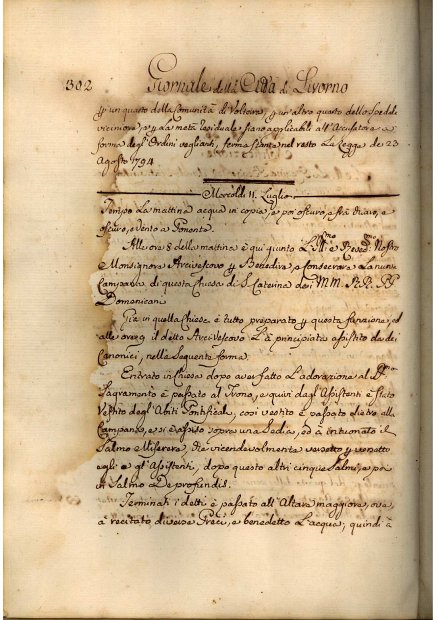 302 Giornale della Città di Livorno
p. un quarto della Comunità di Volterra, p. un altro quarto dello Spedale
viciniore, e p. la metà residuale siano applicabili all'Accusatore a
forma degl'Ordini veglianti, ferma stante nel resto la Legge de 23
Agosto 1794
Mercoldì 11. Luglio
Tempo la mattina acqua in copia, e poi oscuro, e frà chiaro, e
oscuro, e vento a Ponente.
Alle ore 8 della mattina è qui giunto L'Ill.mo e Rev.mo Nostro
Monsignore Arcivescovo p. Benedire, e consecrare la nuova
Campana di questa Chiesa di S. Caterina dei MM. RR. PP.
Domenicani
Già in quella Chiesa è tutto preparato p. questa funzione, ed
alle ore 9 il detto Arcivescovo l'à principiata assistito da dei
Canonici, nella seguente forma.
Entrato in Chiesa dopo aver fatto l'adorazione al SS.mo
Sagramento è passato al Trono, e quivi dagl'Assistenti è stato
vestito degl'Abiti Pontificali, così vestito è passato dietro alla
Campana, e si è assiso sopra una Sedia, ed à intuonato il
Salmo Miserere, che vicendevolmente versetto p. versetto
egli e gl'Assistenti, dopo questo altri cinque Salmi, e poi
il Salmo De profundis.
Terminati i detti è passato all'Altare maggiore, ove
à recitato diverse Preci, e benedetto l'acqua, quindi à